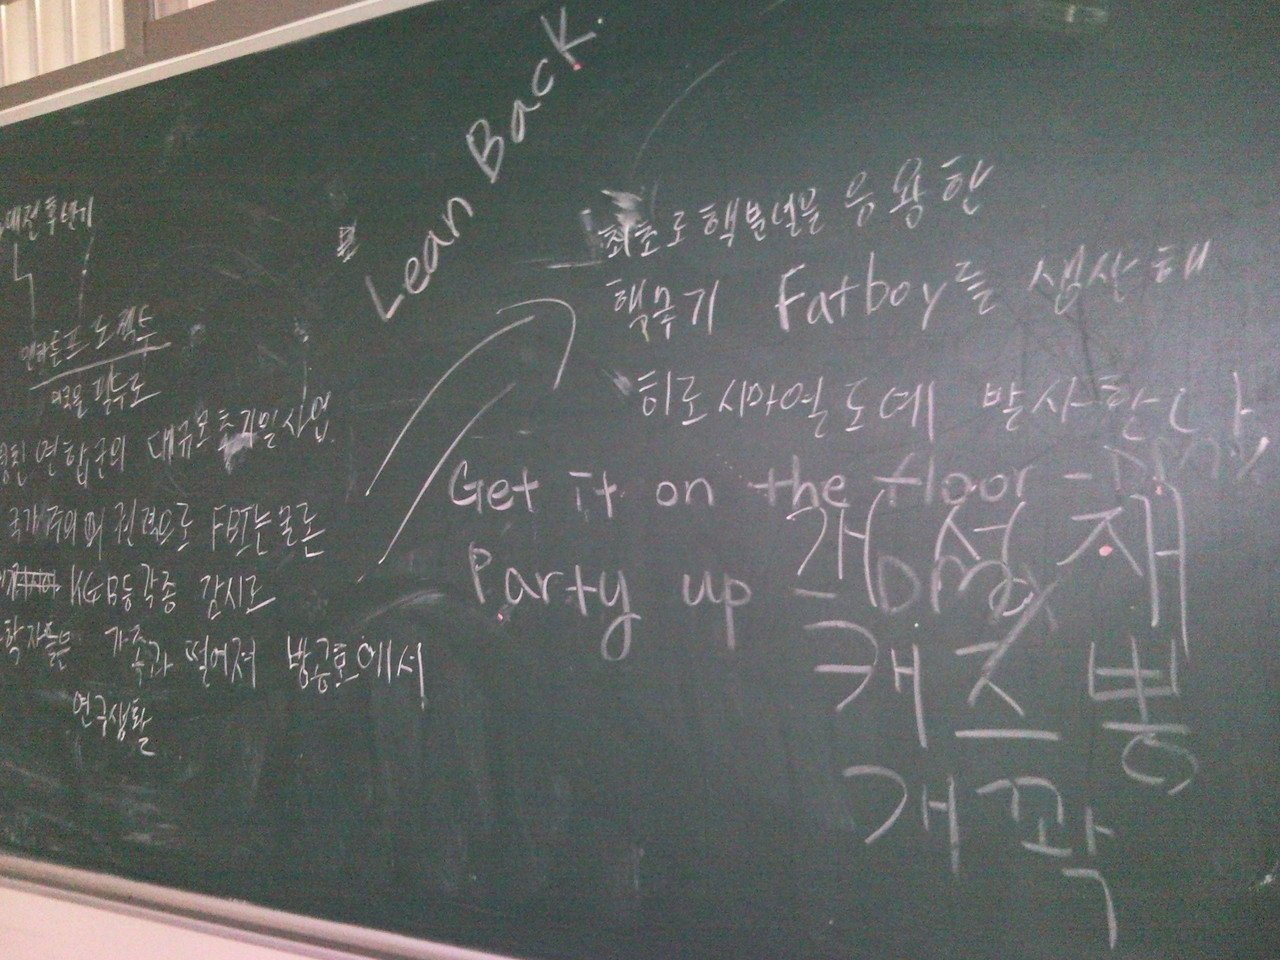 Lean Back
대전 후반기
맨하튼프로젝트
미국을 필두로
연합군의 대규모 추진일사업
국가주의 때 권력으로 FBI는 물론
KGB등 각종 감시로
과학자들은 가족과 떨어져 방공호에서
연구생활
최초로 핵분열을 응용한
핵무기 Fatboy를 생산해
히로시마열도에 발사한다.
Get it on the floor - DMX
Party up - DMX
개석재
캐즈봉
개꽉